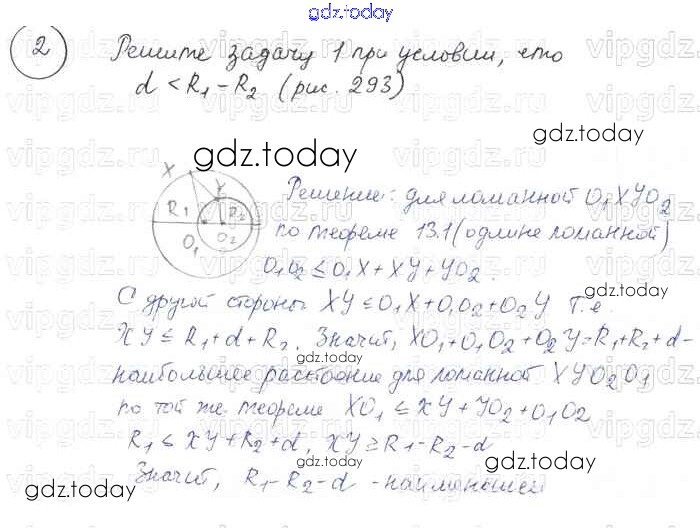 gdz.today
2 Решите задачу 1 при условии, что
d < R₁ – R₂ (рис. 293)
gdz.today
gdz.today
X
Y
R₁
R₂
O₁
O₂
Решение: для ломанной O₁XYO₂
по теореме 13.1 (о длине ломанной)
O₁O₂ ≤ O₁X + XY + YO₂.
gdz.today
С другой стороны XY ≤ O₁X + O₁O₂ + O₂Y. Т.е.
XY ≤ R₁ + d + R₂. Значит, XO₁ + O₁O₂ + O₂Y = R₁ + R₂ + d –
gdz.today
наибольшее расстояние для ломанной XYO₂O₁
по той же теореме XO₁ ≤ XY + YO₂ + O₁O₂
gdz.today
R₁ ≤ XY + R₂ + d, XY ≥ R₁ – R₂ – d
Значит, R₁ – R₂ – d – наименьшее
gdz.today
gdz.today